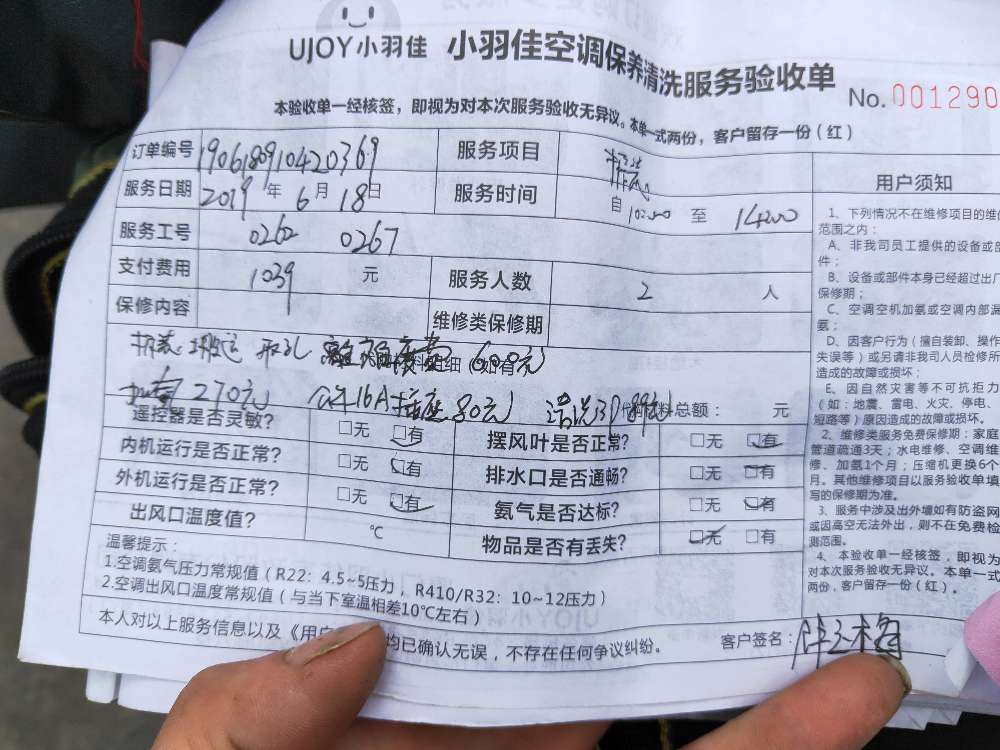 UJOY小羽佳 小羽佳空调保养清洗服务验收单
No. 001290
本验收单一经核签，即视为对本次服务验收无异议。本单一式两份，客户留存一份（红）
订单编号 1906180910420369 服务项目
服务日期 2019 年 6 月 18 日 服务时间 自 10:00 至 14:00
服务工号 0262 0267
支付费用 1039 元 服务人数 2 人
保修内容 维修类保修期
拆装 600元
270元 16A插座80元 清洗3P 89元 材料总额： 元
遥控器是否灵敏? 无 有 摆风叶是否正常? 无 有
内机运行是否正常? 无 有 排水口是否通畅? 无 有
外机运行是否正常? 无 有 氨气是否达标? 无 有
出风口温度值? ℃ 物品是否有丢失? 无 有
温馨提示：
1.空调氨气压力常规值（R22：4.5~5压力，R410/R32：10~12压力）
2.空调出风口温度常规值（与当下室温相差10℃左右）
本人对以上服务信息以及《用户 均已确认无误，不存在任何争议纠纷。
客户签名：
用户须知
1、下列情况不在维修项目的维
范围之内：
A、非我司员工提供的设备或部
件；
B、设备或部件本身已经超过出厂
保修期；
C、空调空机加氨或空调内部漏
氨；
D、因客户行为（擅自装卸、操作
失误等）或另请非我司人员检修所
造成的故障或损坏；
E、因自然灾害等不可抗拒力
（如：地震、雷电、火灾、停电、
短路等）原因造成的故障或损坏。
2、维修类服务免费保修期：家庭
管道疏通3天；水电维修、空调维
修、加氨1个月；压缩机更换6个
月。其他维修项目以服务验收单填
写的保修期为准。
3、服务中涉及出外墙如有防盗网
或因高空无法外出，则不在免费检
测范围。
4、本验收单一经核签，即视为
对本次服务验收无异议。本单一式
两份，客户留存一份（红）。